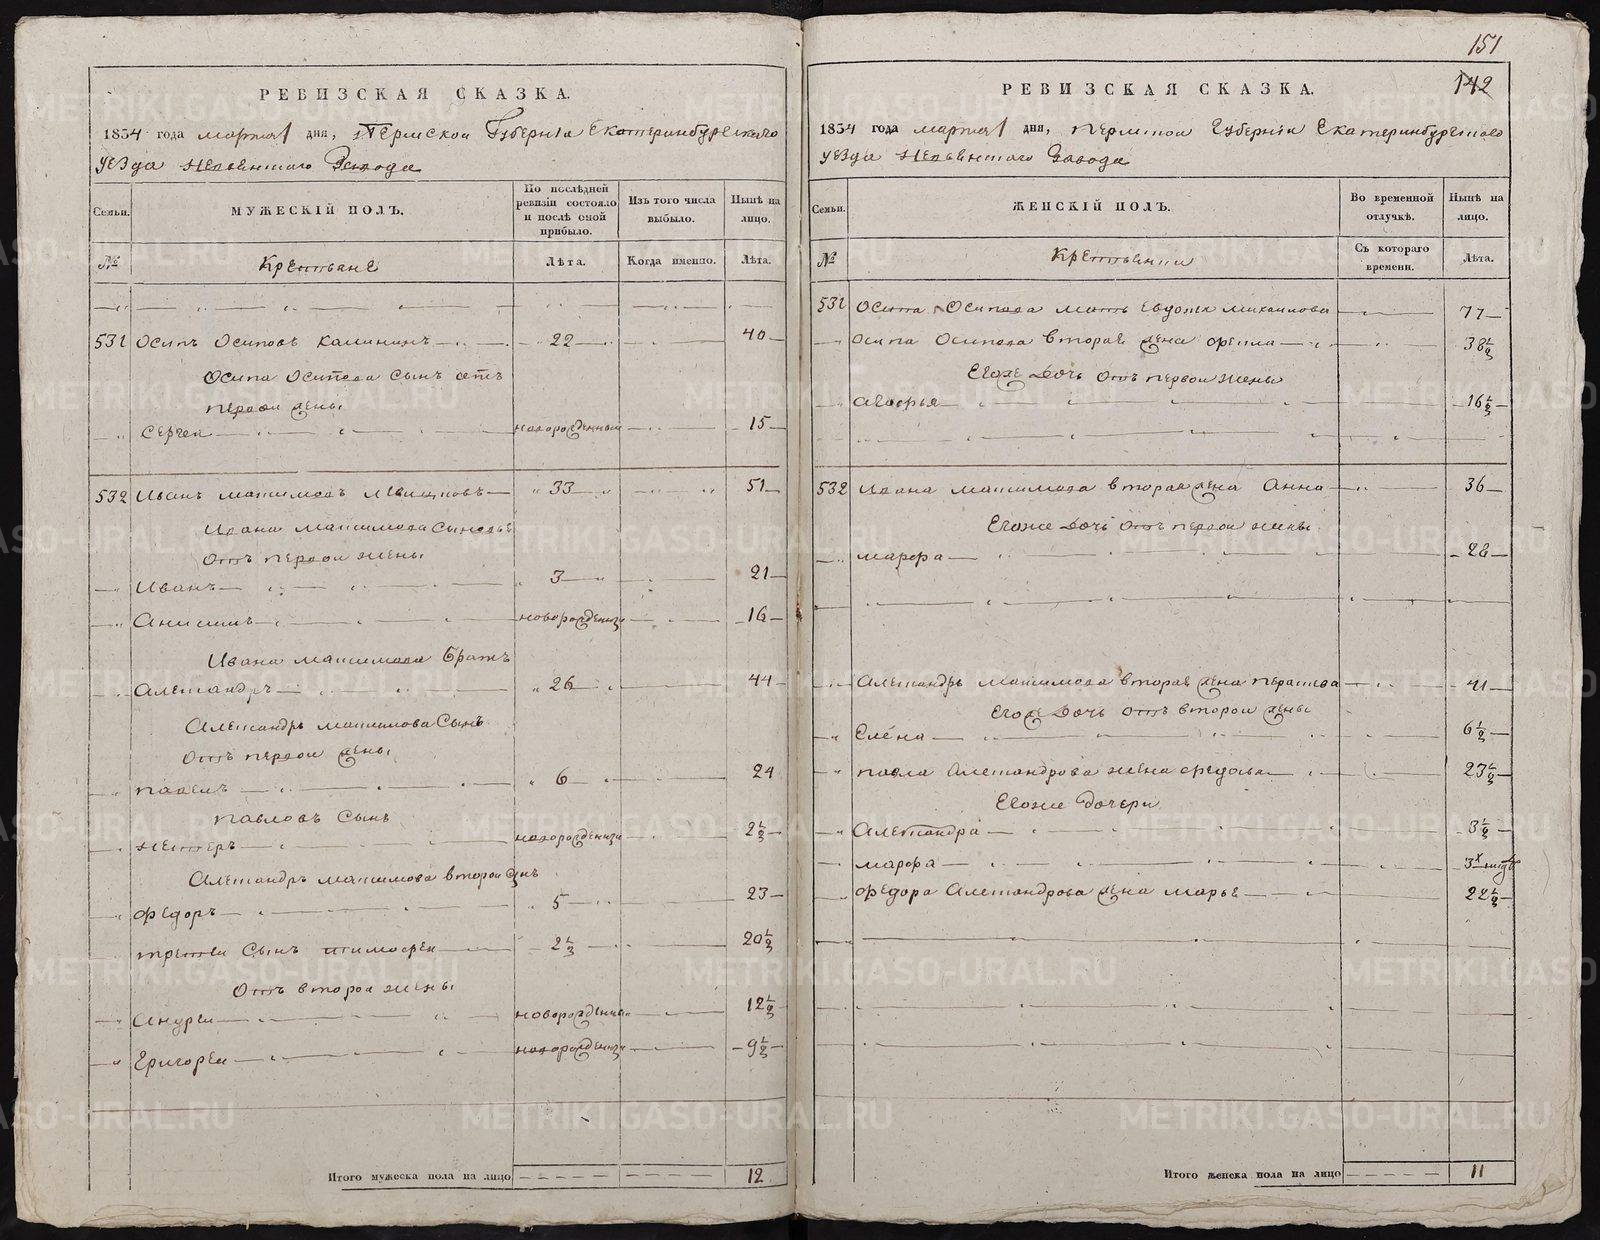 151
142
РЕВИЗСКАЯ СКАЗКА.
1834 года марта 1 дня, Пермской Губерніи Екатеринбургскаго
уезда Невьянскаго Завода
Семьи.
МУЖЕСКІЙ ПОЛЪ.
По послѣдней ревизіи состояло и послѣ оной прибыло.
Изъ того числа выбыло.
Нынѣ на лицо.
№
Крестьяне
Лѣта.
Когда именно.
Лѣта.
531 Осипъ Осиповъ Калининъ 22 40
Осипа Осипова сынъ отъ
первой жены
Сергей новорожденный 15
532 Иванъ Максимовъ 33 51
Ивана Максимова сыновье
Отъ первой жены
Иванъ 3 21
Анисимъ новорожденный 16
Ивана Максимова братъ
Александръ 26 44
Александръ Максимова сынъ
Отъ первой жены
Павелъ 6 24
Павловъ сынъ
Нестеръ новорожденный 2½
Александръ Максимова второй сынъ
Федоръ 5 23
Третей сынъ Тимофей 2½ 20½
Отъ второй жены
Андрей новорожденный 12½
Григорей новорожденный 9½
Итого мужеска пола на лицо 12
РЕВИЗСКАЯ СКАЗКА.
1834 года марта 1 дня, Пермской Губерніи Екатеринбургскаго
уезда Невьянскаго Завода
Семьи.
ЖЕНСКІЙ ПОЛЪ.
Во временной отлучкѣ.
Нынѣ на лицо.
№
Крестьянки
Съ котораго времени.
Лѣта.
531 Осипа Осипова мать Евдокья Михаилова 77
Осипа Осипова вторая жена Фекла 38½
Егоже дочь отъ первой жены
Агафья 16½
532 Ивана Максимова вторая жена Анна 36
Егоже дочь отъ первой жены
Марфа 28
Александръ Максимова вторая жена 41
Егоже дочь отъ второй жены
Елена 6½
Павла Александрова жена Федосья 23½
Егоже дочери
Александра 3½
Марфа 3
Федора Александрова жена Марье 22½
Итого женска пола на лицо 11
METRIKI.GASO-URAL.RU